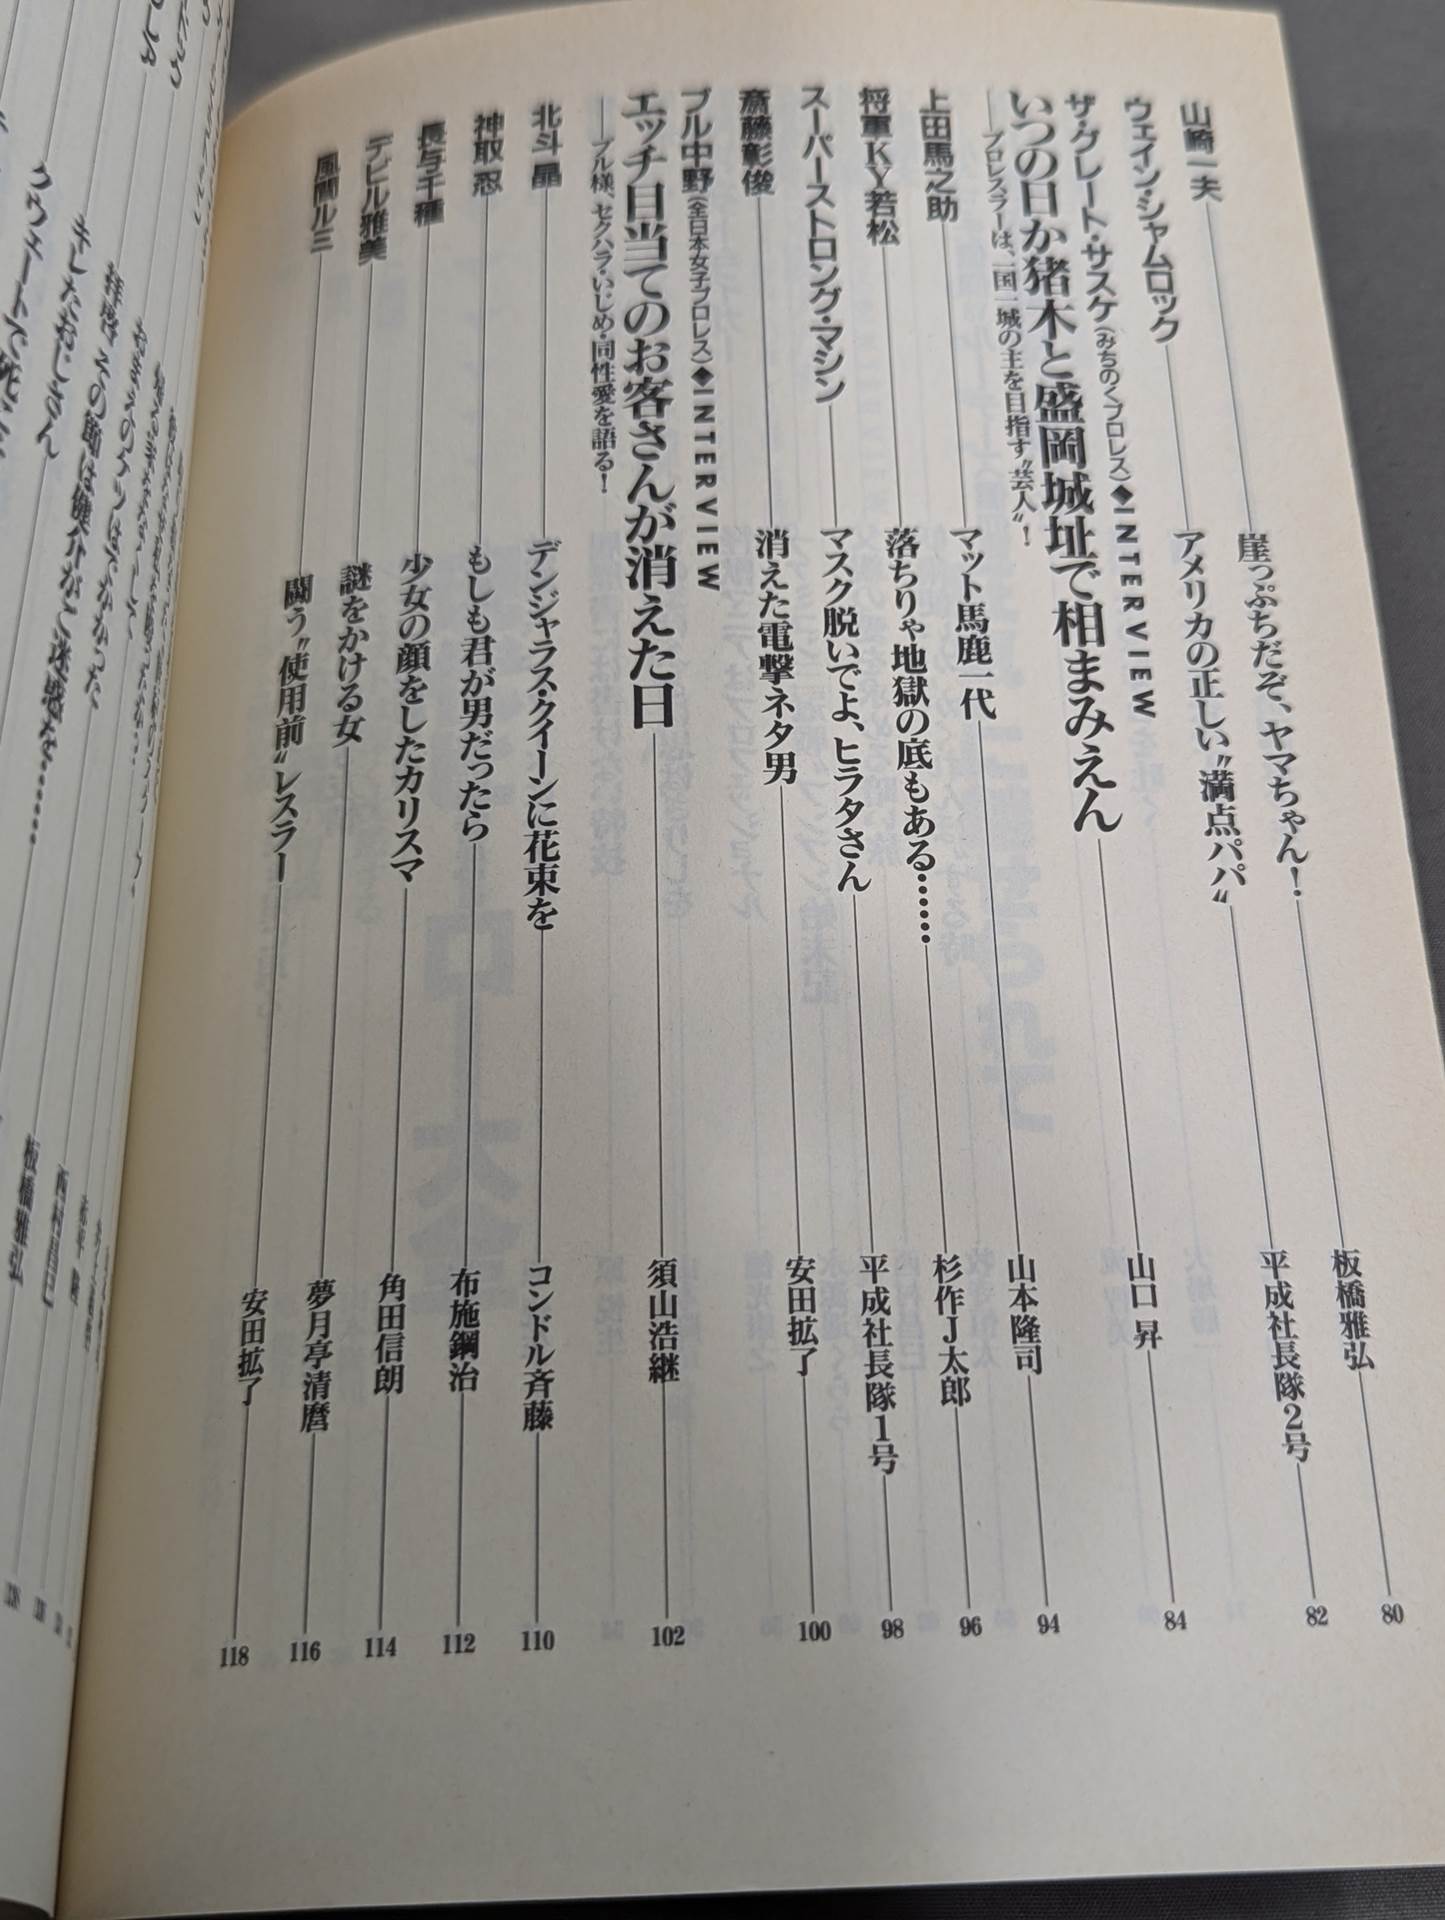 山崎一夫――崖っぷちだぞ、ヤマちゃん！――板橋雅弘――80
ウェイン・シャムロック――アメリカの正しい〝満点パパ〟――平成社長隊2号――82
ザ・グレート・サスケ（みちのくプロレス）◆INTERVIEW
いつの日か猪木と盛岡城址で相まみえん――山口 昇――84
――プロレスラーは、一国一城の主を目指す〝芸人〟！
上田馬之助――マット馬鹿一代――山本隆司――94
将軍KY若松――落ちりゃ地獄の底もある……――杉作J太郎――96
スーパーストロング・マシン――マスク脱いでよ、ヒラタさん――平成社長隊1号――98
斎藤彰俊――消えた電撃ネタ男――安田拡了――100
ブル中野（全日本女子プロレス）◆INTERVIEW
エッチ目当てのお客さんが消えた日――須山浩継――102
――ブル様、セクハラ・いじめ・同性愛を語る！
北斗 晶――デンジャラス・クイーンに花束を――コンドル斉藤――110
神取 忍――もしも君が男だったら――布施鋼治――112
長与千種――少女の顔をしたカリスマ――角田信朗――114
デビル雅美――謎をかける女――夢月亭清麿――116
風間ルミ――闘う〝使用前〟レスラー――安田拡了――118
拝啓、その節は健介がご迷惑を……
板橋雅弘